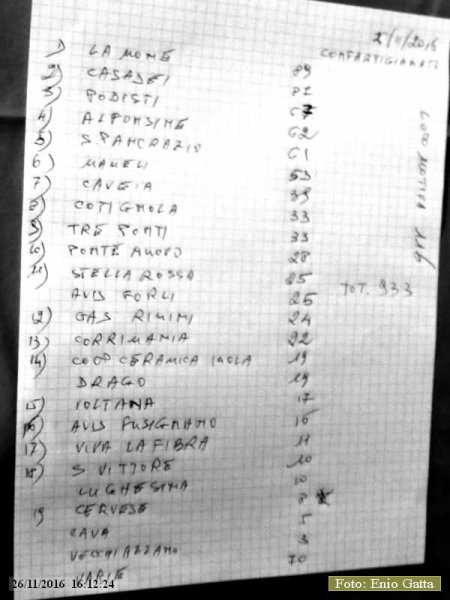 2/11/2016
CONFARTIGIANATI
1) LA MOME 89
2) CASADEI 82
3) PODISTI 67
4) ALFONSINE 62
5) S. PANCRAZIO 61
6) MAMELI 53
7) CAVEIA 39
8) COTIGNOLA 33
9) TRE PONTI 33
10) PONTE NUOVO 28
11) STELLA ROSSA 25
AVIS FORLI 25
12) GAS RIMINI 24
13) CORRIMANIA 22
14) COOP CERAMICA IMOLA 19
DRAGO 19
15) VOLTANA 17
16) AVIS FUSIGNANO 16
17) VIVA LA FIBRA 11
18) S VITTORE 10
LUGHESINA 10
19 CERVESE 8
CAVA 5
VECCHIAZZANO 3
VARIE 70
TOT. 933
26/11/2016 16:12:24
Foto: Enio Gatta